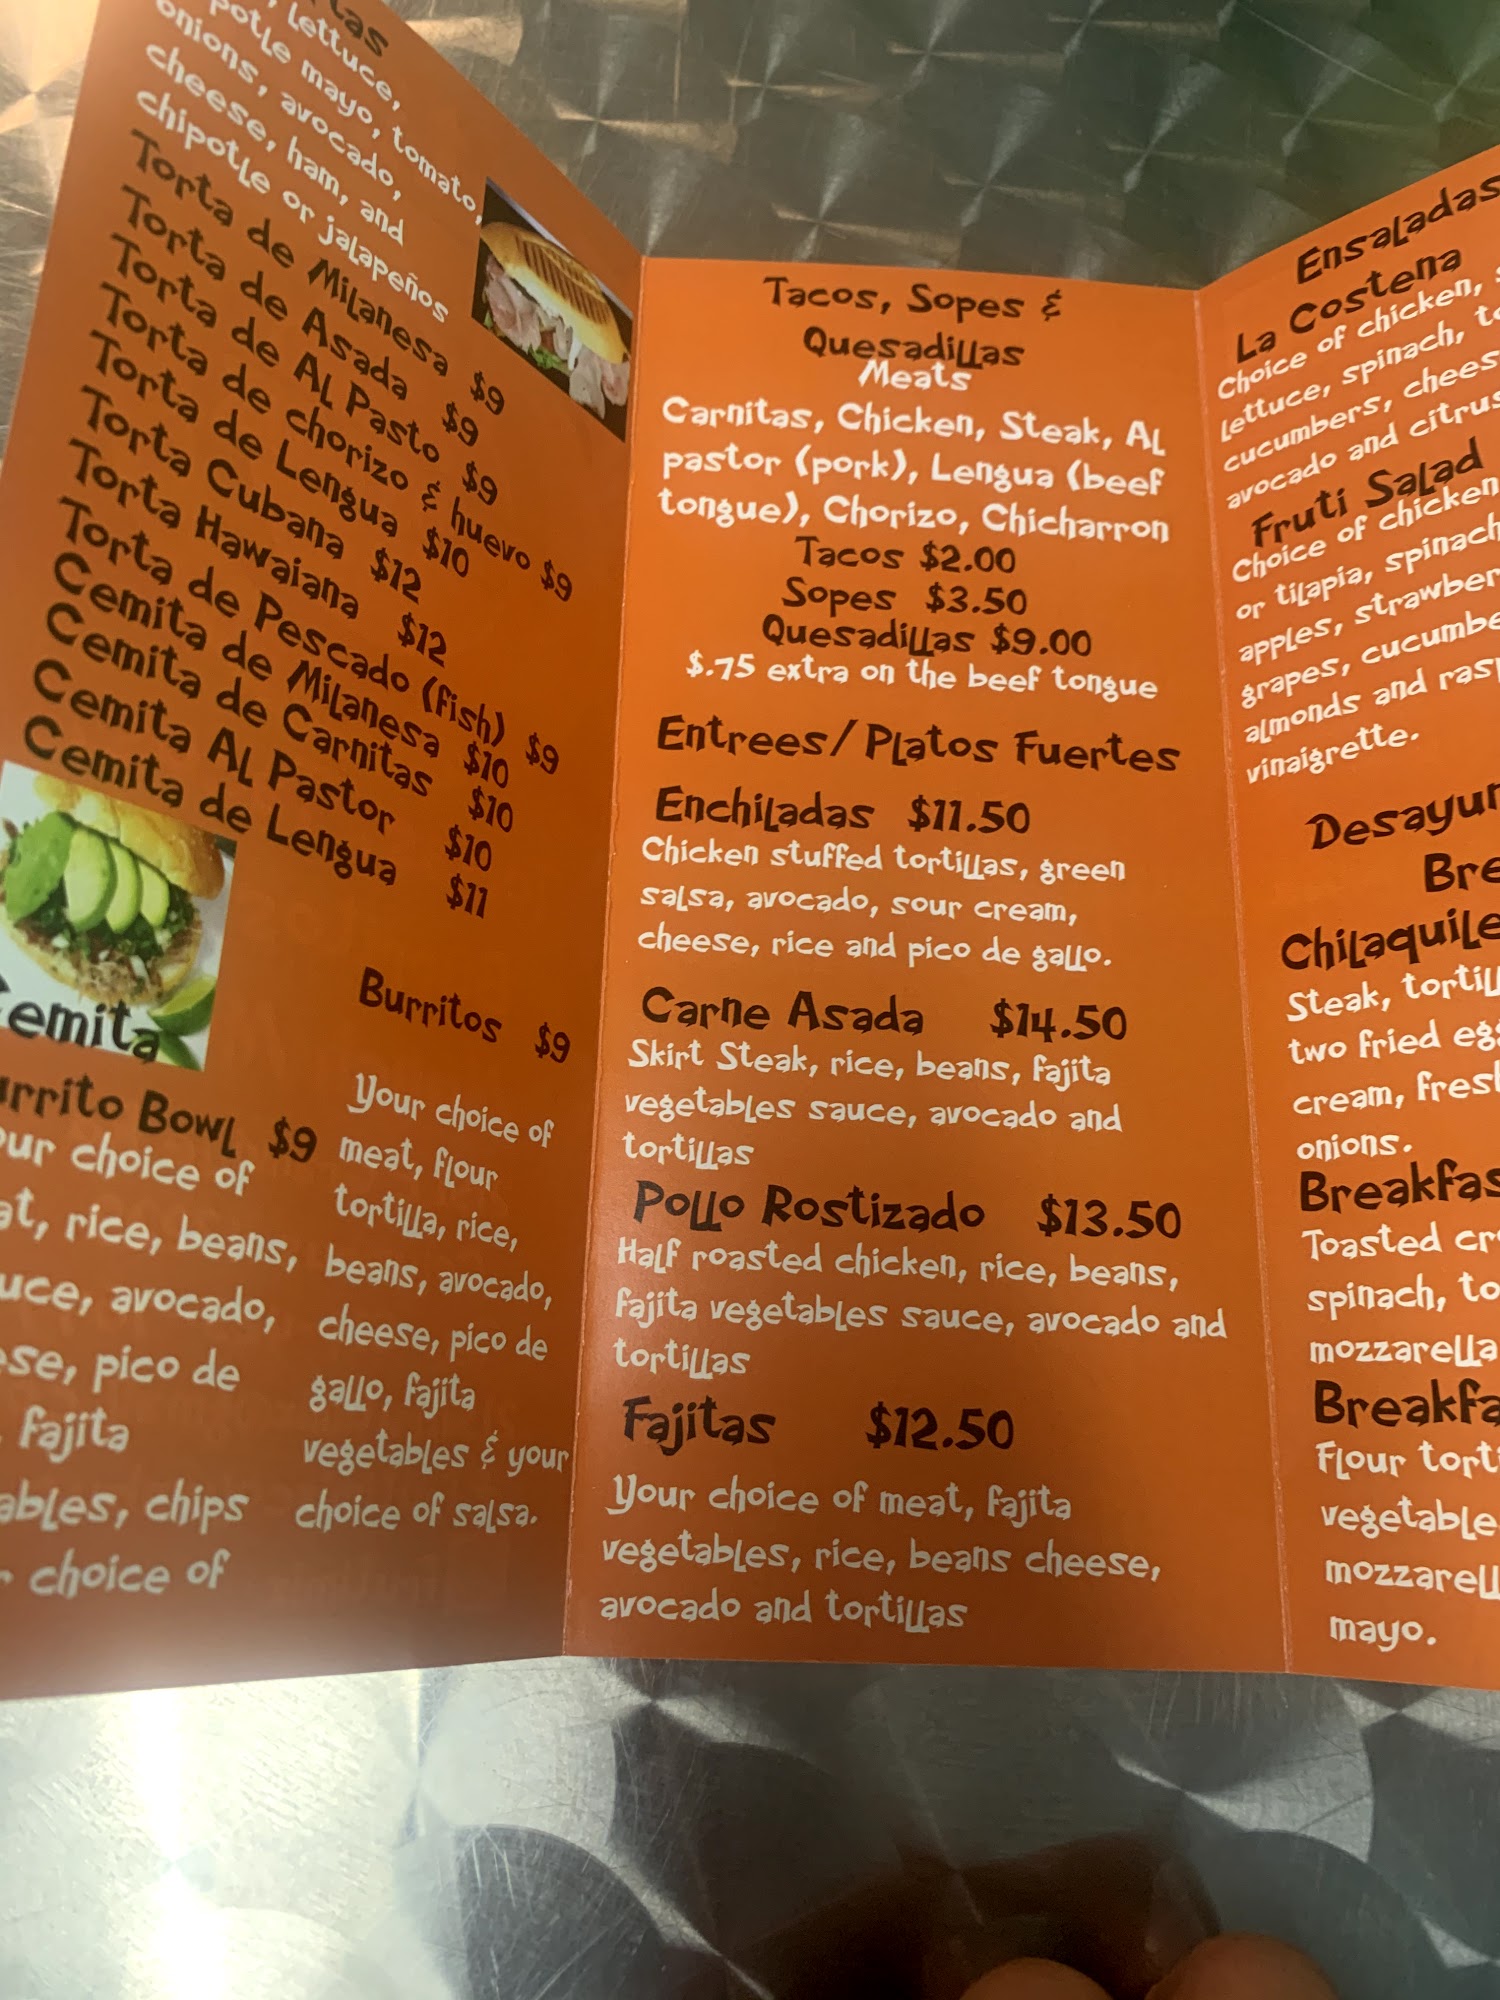 lettuce,
mayo, tomato,
onions, avocado,
cheese, ham, and
chipotle or jalapeños
Torta de Milanesa $9
Torta de Asada $9
Torta de AL Pasto $9
Torta de chorizo & huevo $9
Torta de Lengua $10
Torta Cubana $12
Torta Hawaiana $12
Torta de Pescado (fish) $9
Cemita de Milanesa $10
Cemita de Carnitas $10
Cemita AL Pastor $10
Cemita de Lengua $11
Cemita
Burritos $9
Your choice of
meat, flour
tortilla, rice,
beans, avocado,
cheese, pico de
gallo, fajita
vegetables & your
choice of salsa.
Bowl $9
choice of
rice, beans,
avocado,
pico de
fajita
chips
choice of
Tacos, Sopes &
Quesadillas
Meats
Carnitas, Chicken, Steak, AL
pastor (pork), Lengua (beef
tongue), Chorizo, Chicharron
Tacos $2.00
Sopes $3.50
Quesadillas $9.00
$.75 extra on the beef tongue
Entrees/Platos Fuertes
Enchiladas $11.50
Chicken stuffed tortillas, green
salsa, avocado, sour cream,
cheese, rice and pico de gallo.
Carne Asada $14.50
Skirt Steak, rice, beans, fajita
vegetables sauce, avocado and
tortillas
Pollo Rostizado $13.50
Half roasted chicken, rice, beans,
fajita vegetables sauce, avocado and
tortillas
Fajitas $12.50
Your choice of meat, fajita
vegetables, rice, beans cheese,
avocado and tortillas
Ensaladas
La Costena
Choice of chicken,
lettuce, spinach,
cucumbers,
avocado and citrus
Fruti Salad
Choice of chicken
or tilapia, spinach
apples,
grapes,
almonds and
vinaigrette.
Steak,
two fried
cream,
onions.
Toasted
spinach,
mozzarella
Flour
mayo.